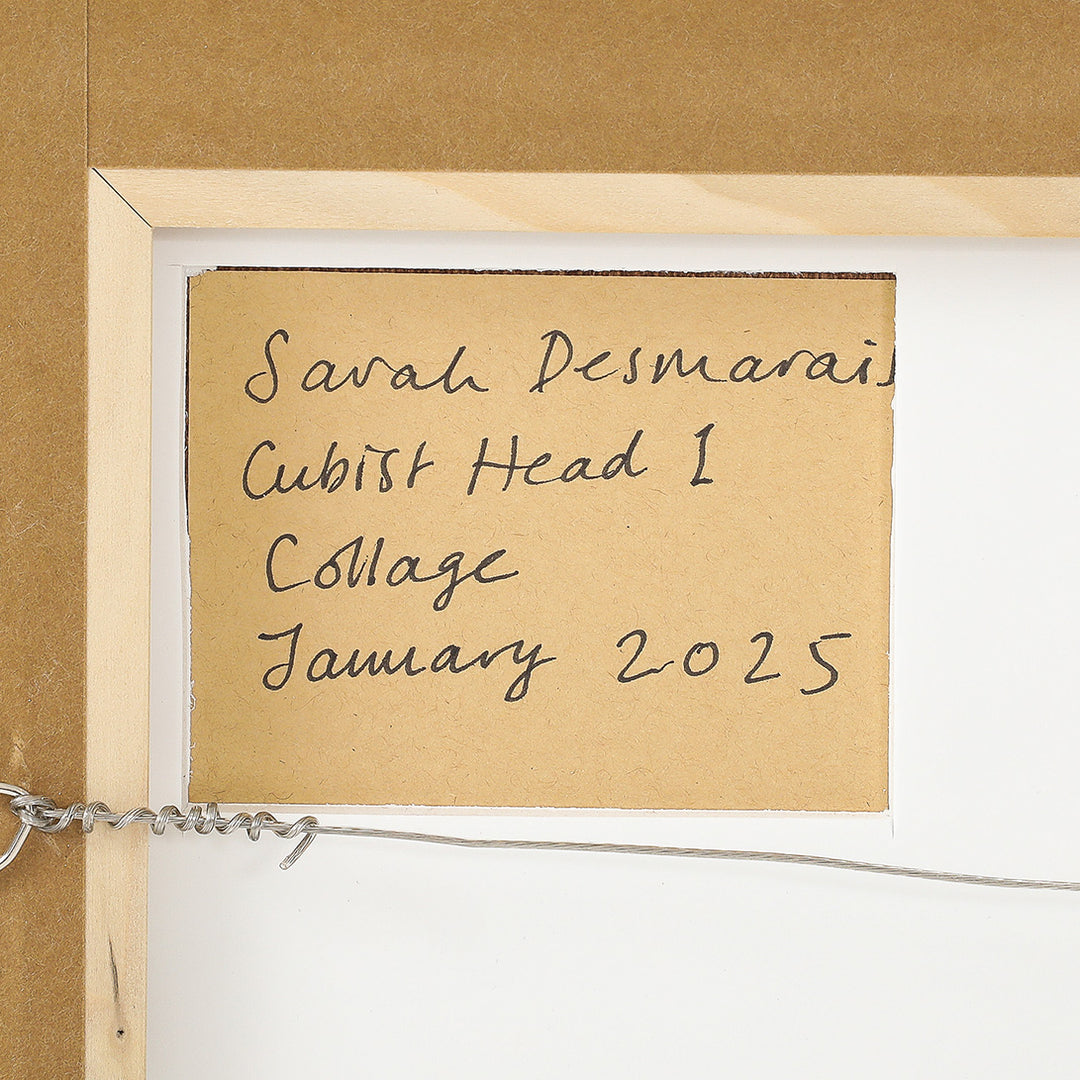 Sarah Desmarais
Cubist Head I
Collage
January 2025